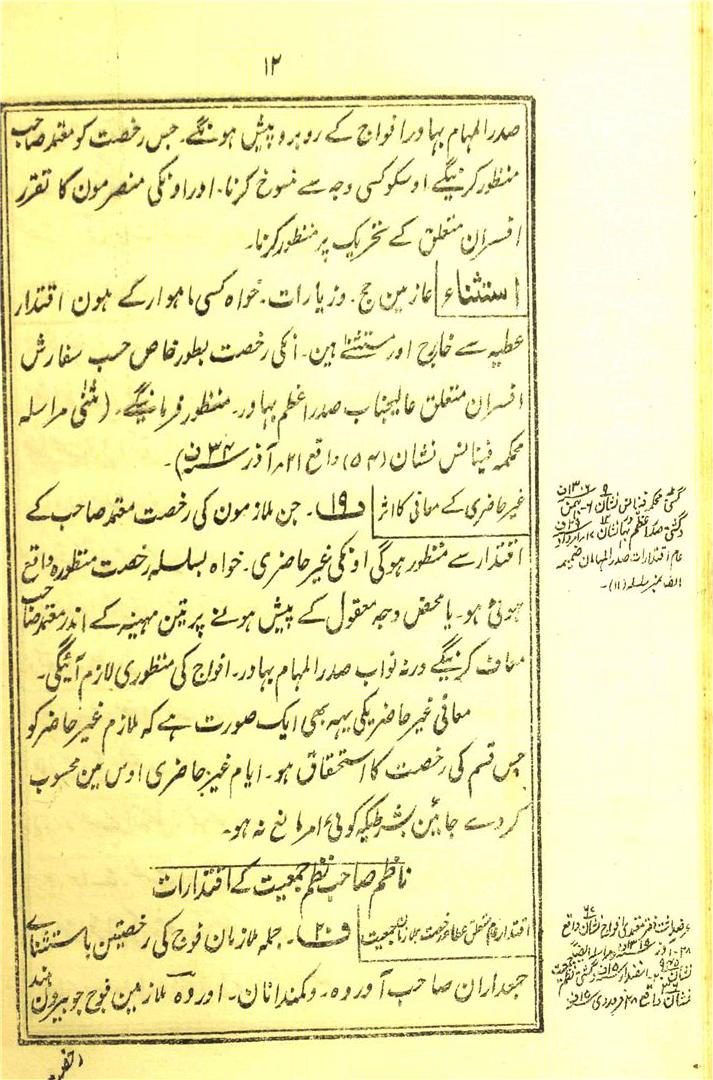 ۱۲
صدر المہام بہادر افواج کے روبرو پیش ہونگے۔ جس رخصت کو معتمد صاحب
منظور کرینگے اوسکو کسی وجہ سے منسوخ کرنا۔ اور اونکی منصرمون کا تقرر
افسران متعلق کے تحریک پر منظور کرنا۔
استثناء عازمین حج۔ وزیارات۔ خواہ کسی ماہوار کے ہون اقتدار
عطیہ سے خارج اور مستثنٰے ہین۔ انکی رخصت بطور خاص حسب سفارش
افسران متعلق عالیجناب صدر اعظم بہادر۔ منظور فرمائینگے۔ (مثنٰی مراسلہ
محکمہ فینانس نشان (۵۴) واقع ۲۱؍ آذر ۳۴ ف)۔
غیر حاضری کے معافی کا اثر ف۱۹۔ جن ملازمون کی رخصت معتمد صاحب کے
اقتدار سے منظور ہوگی اونکی غیر حاضری۔ خواہ بسلسلہ رخصت منظورہ واقع
ہوئی ہو۔ یا محض وجہ معقول کے پیش ہونے پر تین مہینہ کے اندر معتمد صاحب
معاف کرینگے ورنہ نواب صدر المہام بہادر۔ افواج کی منظوری لازم آئیگی۔
معافی غیر حاضریکی یہہ بھی ایک صورت ہے کہ ملازم غیر حاضر کو
جس قسم کی رخصت کا استحقاق ہو۔ ایام غیر حاضری اوس مین محسوب
کر دے جائین بشرطیکہ کوئی امر مانع نہ ہو۔
ناظم صاحب نظم جمعیت کے اقتدارات
اقتدار عام متعلق عطاء رخصت ملازمان جمعیت ف۲۰۔ جملہ ملازمان فوج کی رخصتین باستثنائے
جمعداران صاحب آوردہ۔ وکمندانان۔ اور وہ ملازمین فوج جو بیرون ہند
گشتی محکمہ فینانس نشان ۹ ۶۔ بہمن ۱۳۰۶ ف
و گشتی صدر اعظم بہادر نشان
عام اقتدارات صدر المہامان ضمیمہ
الف نمبر سلسلہ (۱۱)۔
دفتر معتمدی افواج نشان واقع
نشان واقع ۲۸ فروردی